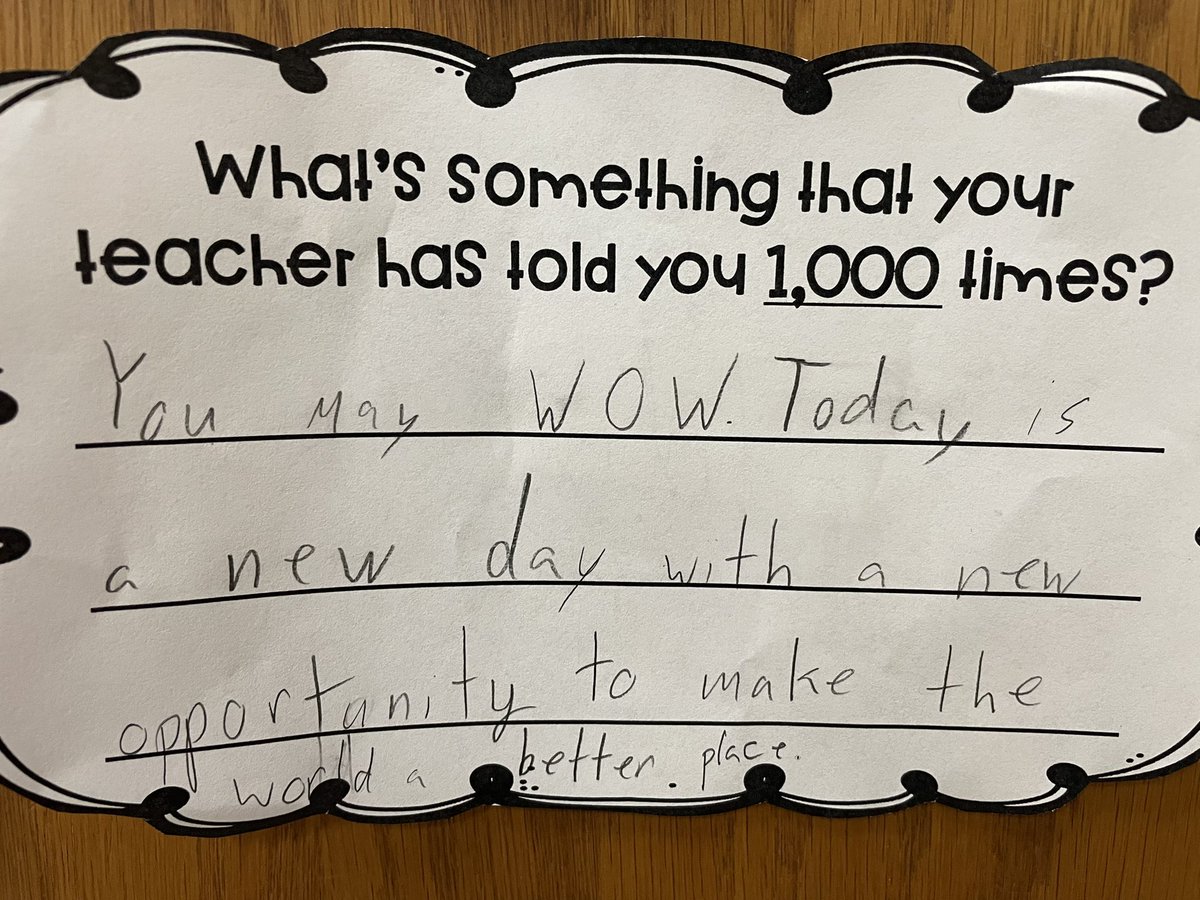 What's something that your
teacher has told you 1,000 times?
You may WOW. Today is
a new day with a new
opportunity to make the
world a better place.